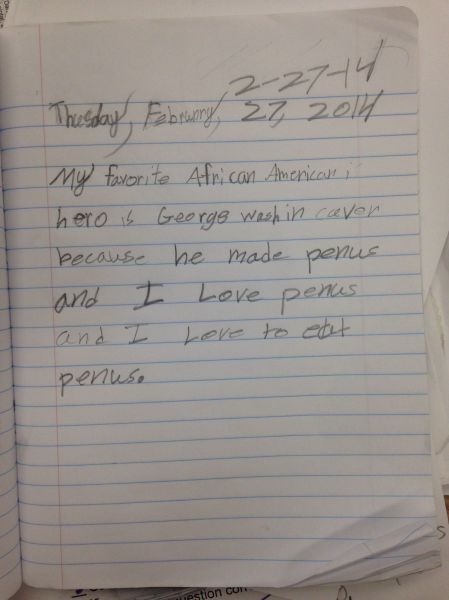 2-27-14
Thusday, February, 27, 2014
My favorite African American i
hero is George washin caver
because he made penus
and I Love penus
and I Love to eat
penus.
uestion con